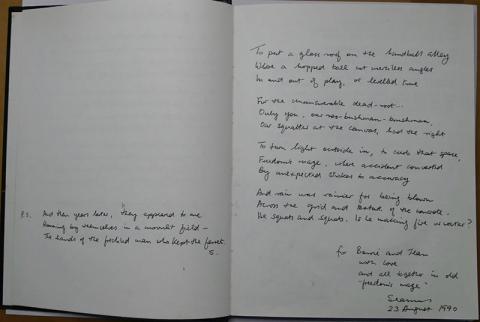 P.S. And ten years later, they appeared to me
Homing by themselves in a moonlit field –
The hands of the fabled men who kept the faith.
S.
To put a glass roof on the handball alley
Where a hopped ball cut merciless angles
In and out of play, or levelled true
For the unanswerable dead-root...
Only you, our
Our squatter at the canvas, had the right
To turn light outside in, to curb that space,
Freedom's wage, where accident converted
By unexpected strokes to accuracy
And rain was rainier for being blown
Across the grid and texture of the concrete.
He squats and squats. Is he making fire or water?
for Barrie and Jean
with love
and all together in old
"freedom's wage"
Seamus
23 August 1990